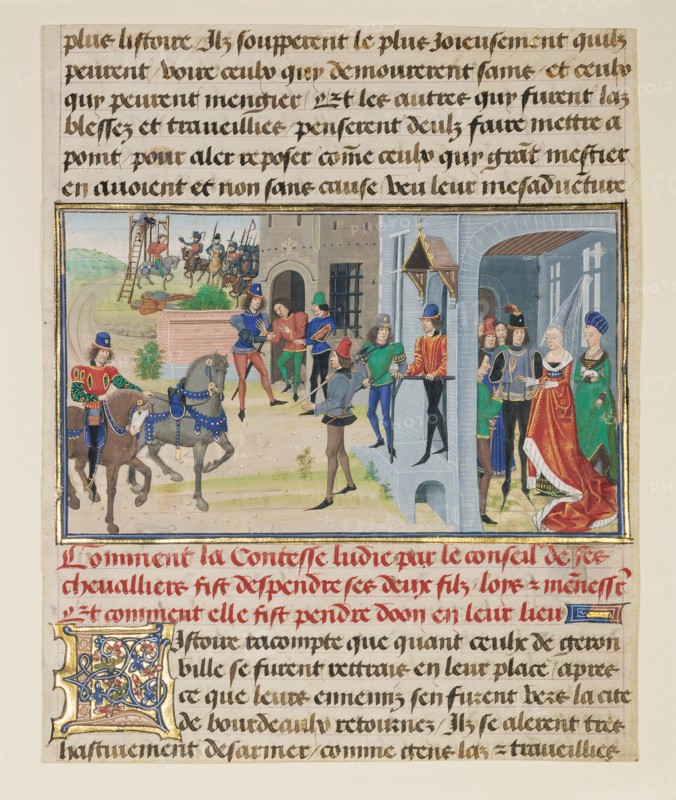 plus listoire Ilz soupperent le plus Joieusement quilz
peurent / voire ceulx quy demourerent sains / et ceulx
quy peurent mengier / Et les autres quy furent las
blessez et travuillies / penserent deulz faire mettre a
point / pour aler reposer com̄e ceulx quy grāt mestier
en auoient et non sans cause / veu leur mesaduēture
Comment la Contesse ludie par le conseil de ses
cheualliers fist despendre ses deux filz / loys &
Et comment elle fist pendre doon en leur lieu
Istoire racompte que quant ceulx de geron
ville se furent rettrais en leur place / apres
ce que leurs ennemiz sen furent vers la cite
de bourdeaulx retournez / Ilz se alerent tres
hastiuement desarmer / comme gens las & trauaillies